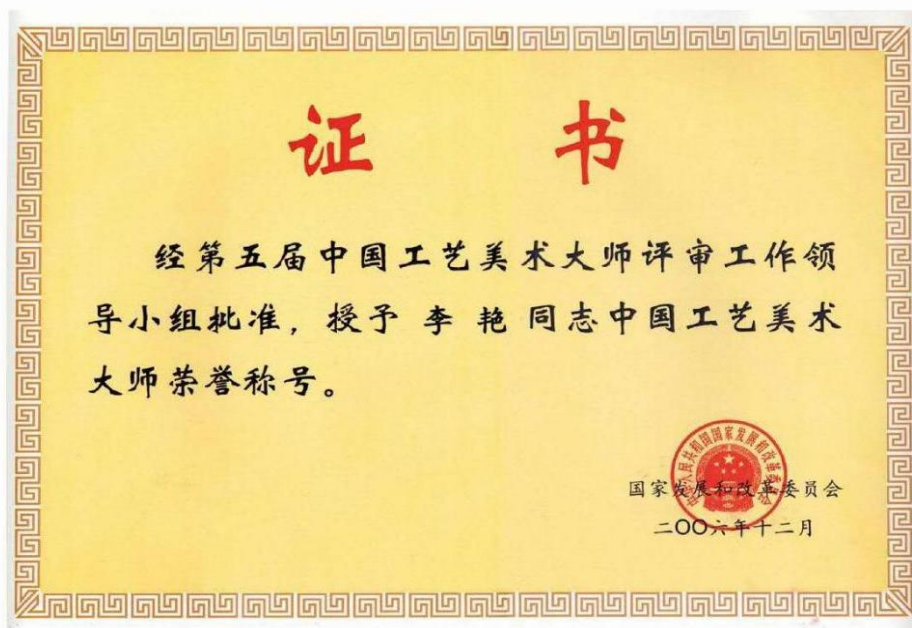 证书
经第五届中国工艺美术大师评审工作领
导小组批准，授予 李 艳 同志中国工艺美术
大师荣誉称号。
中华人民共和国国家发展和改革委员会
国家发展和改革委员会
二〇〇六年十二月